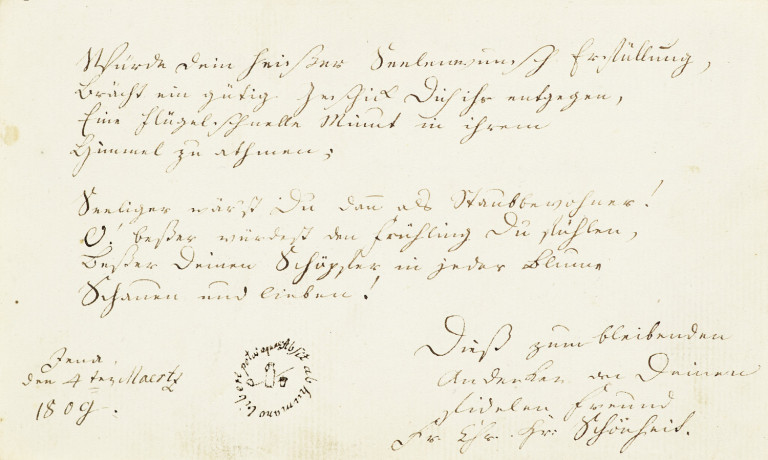 Würde dein heißer Seelenwunsch Erfüllung,
Brächt ein gütig Geschick Dich ihr entgegen,
Eine flügelschnelle Minut in ihrem
Himmel zu athmen;
Seeliger wär'st Du dann als Staubbewohner!
O! beßer würdest den Frühling Du fühlen,
Beßer Deinen Schöpfer in jeder Blume
Schauen und lieben!
Jena,
den 4ten Maertz
1809.
Dieß zum bleibenden
Andenken an Deinen
fidelen Freund
Fr. Chr. Hr: Schönheit.